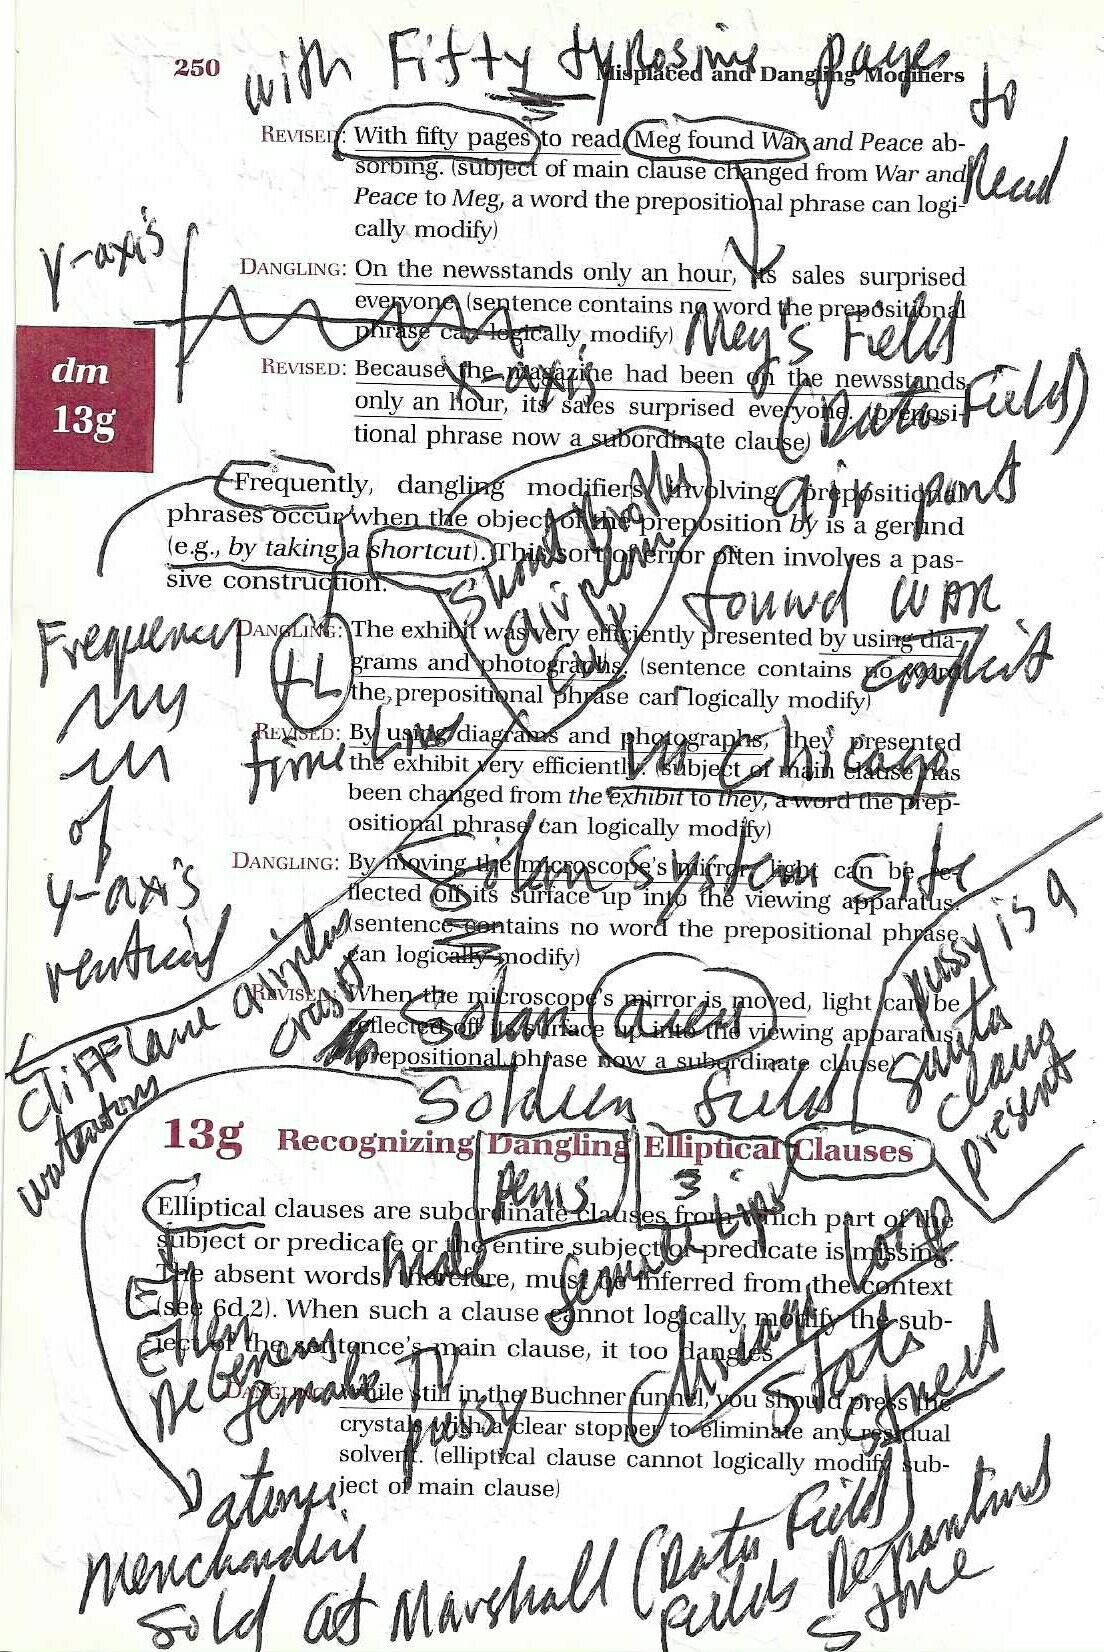 with Fifty tyrosine pages
250
Misplaced and Dangling Modifiers
to
Read
REVISED: With fifty pages to read Meg found War and Peace ab-
sorbing. (subject of main clause changed from War and
Peace to Meg, a word the prepositional phrase can logi-
cally modify)
y-axis
DANGLING: On the newsstands only an hour, its sales surprised
everyone. (sentence contains no word the prepositional
phrase can logically modify)
Meg's Field
x-axis
(Data Field)
dm
13g
REVISED: Because the magazine had been on the newsstands
only an hour, its sales surprised everyone. (preposi-
tional phrase now a subordinate clause)
air port
Frequently, dangling modifiers involving prepositional
phrases occur when the object of the preposition by is a gerund
(e.g., by taking a shortcut). This sort of error often involves a pas-
sive construction.
Short
airplane
found war
conflict
in Chicago
Frequency
of
y-axis
vertical
TL
time Line
DANGLING: The exhibit was very efficiently presented by using dia-
grams and photographs. (sentence contains no word
the prepositional phrase can logically modify)
REVISED: By using diagrams and photographs, they presented
the exhibit very efficiently. (subject of main clause has
been changed from the exhibit to they, a word the prep-
ositional phrase can logically modify)
Solar system site
DANGLING: By moving the microscope's mirror, light can be re-
flected off its surface up into the viewing apparatus.
(sentence contains no word the prepositional phrase
can logically modify)
Solar area
REVISED: When the microscope's mirror is moved, light can be
reflected off its surface up into the viewing apparatus.
(prepositional phrase now a subordinate clause)
Soldier field
pussy is a
Santa
Claus
present
airplane
crash
13g Recognizing Dangling Elliptical Clauses
penis
male
female lips
Elliptical clauses are subordinate clauses from which part of the
subject or predicate or the entire subject or predicate is missing.
The absent words, therefore, must be inferred from the context
(see 6d.2). When such a clause cannot logically modify the sub-
ject of the sentence's main clause, it too dangles
Ellen
DeGeneres
female TV
pussy
Chicago Loop
State
Street
DANGLING: While still in the Buchner funnel, you should press the
crystals with a clear stopper to eliminate any residual
solvent. (elliptical clause cannot logically modify sub-
ject of main clause)
Merchandise
sold at Marshall (Data Field)
Fields Department
Store